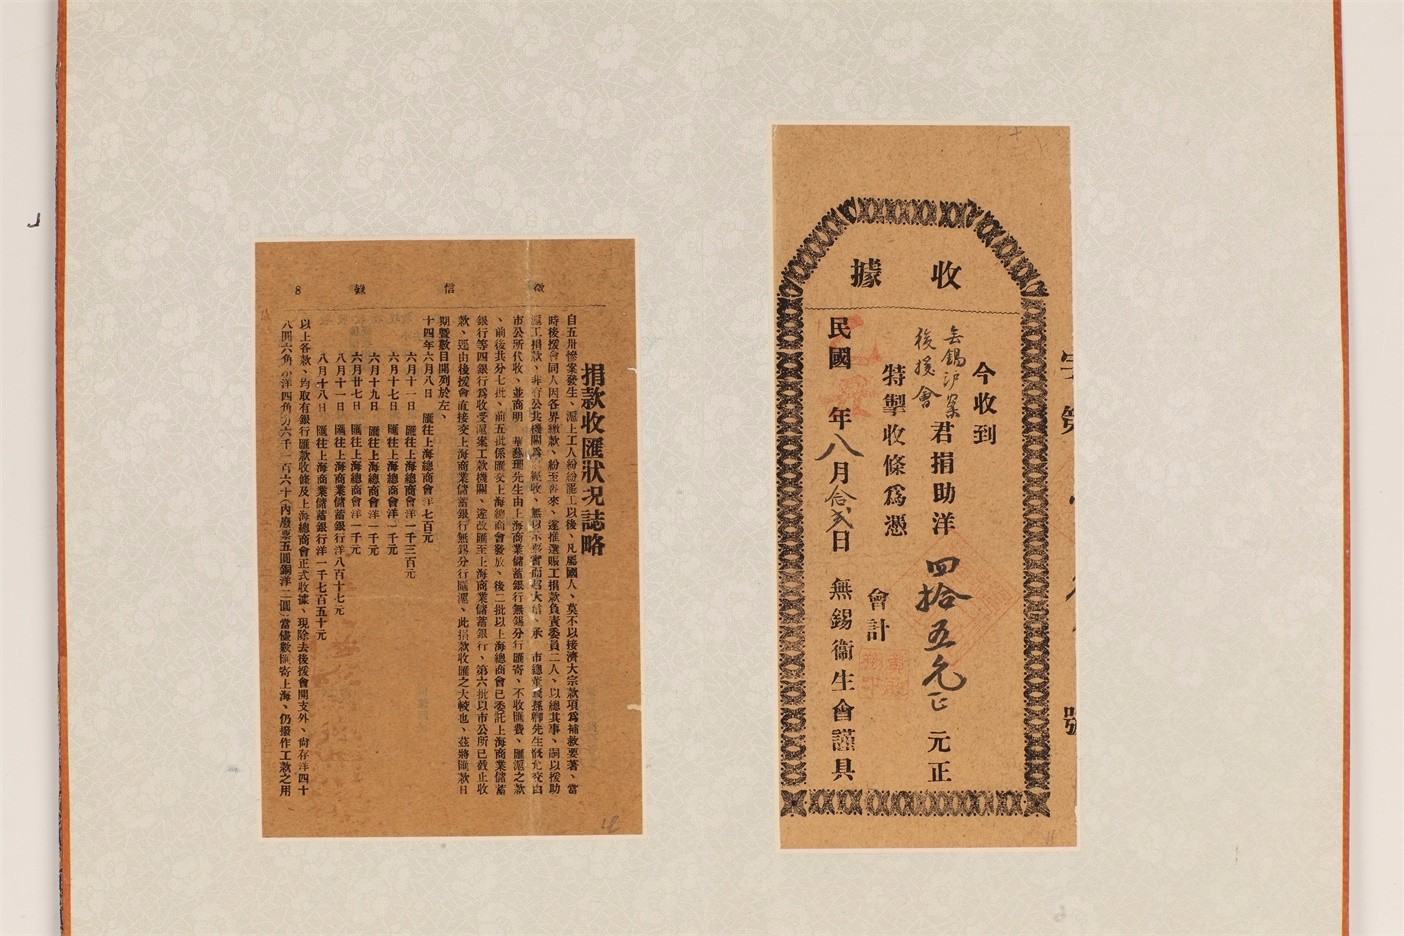 收據
今收到
無錫沪案
後援會
君捐助洋四拾五元正元正
特掣收條為憑
會計
民國 年八月拾弍日 無錫衞生會謹具
第
號
徵信錄 8
捐款收匯狀況誌略
自五卅慘案發生、滬上工人紛紛罷工以後、凡屬國人、莫不以接濟大宗款項爲補救要著、當
時後援會同人因各界繳款、紛至沓來、遂推選賑工捐款負責委員二人、以總其事、嗣以援助
滬工捐款、非有公共機關爲 收、無以示 實而昭大信、承 市總董 孫卿先生慨允交由
市公所代收、並商明 華藝珊先生由上海商業儲蓄銀行無錫分行匯寄、不收匯費、匯滬之款
、前後共分七批、前五批係匯交上海總商會發放、後二批以上海總商會已委託上海商業儲蓄
銀行等四銀行爲收受滬案工款機關、遂改匯至上海商業儲蓄銀行、第六批以市公所已截止收
款、逕由後援會直接交上海商業儲蓄銀行無錫分行匯滬、此捐款收匯之大較也、茲將匯款日
期暨數目開列於左、
十四年六月八日 匯往上海總商會洋七百元
六月十一日 匯往上海總商會洋一千三百元
六月十七日 匯往上海總商會洋一千元
六月十九日 匯往上海總商會洋一千元
六月廿七日 匯往上海總商會洋一千元
八月十一日 匯往上海商業儲蓄銀行洋八百十七元
八月十八日 匯往上海商業儲蓄銀行洋一千七百五十元
以上各款、均取有銀行匯款收條及上海總商會正式收據、現除去後援會開支外、尚存洋四十
八圓六角 洋四角 六千一百六十(內廢票五圓銅洋二圓 當儘數匯寄上海、仍撥作工款之用